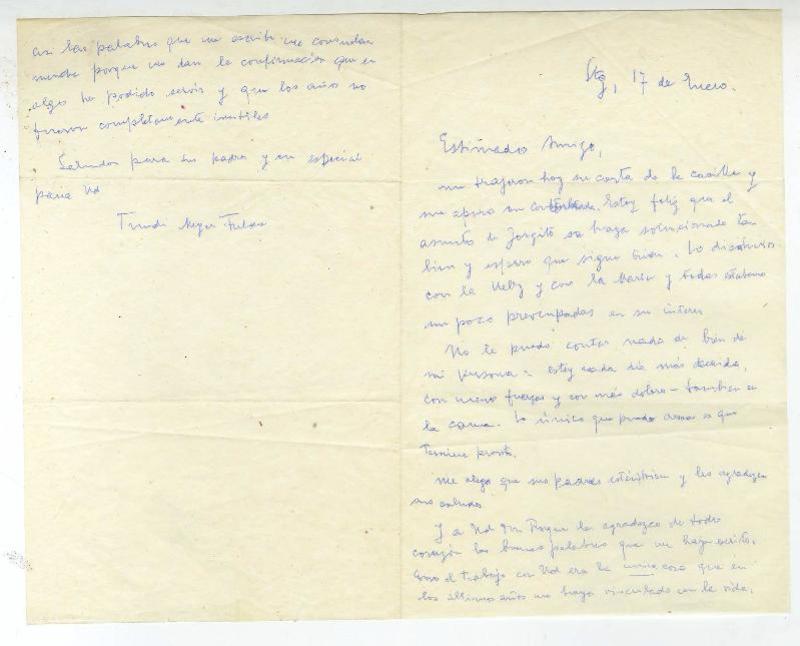 Stg, 17 de Enero.
Estimado Amigo,
me trajeron hoy su carta de la casilla y
me apuro en . Estoy feliz que el
asunto de Jorgito se haya solucionado tan
bien y espero que sigue bien. Lo discutimos
con la Nelly y con la María y todas estabamos
un poco preocupadas en su interes
No te puedo contar nada de bien de
mi persona: estoy cada día más decaida,
con menos fuerzas y con más dolores - tambien en
la cama. Lo único que puedo es que
termine pronto.
Me alegro que sus padres estén bien y les agradezco
sus saludos
Y a Ud la agradezco de todo
corazón las buenas palabras que me haya escrito.
Como el trabajo con Ud era la unica cosa que en
los últimos años me haya vinculado con la vida,
asi las palabras que me escribe me consuelan
mucho porque me dan la confirmación que en
algo he podido servir y que los años no
fueron completamente inutiles
Saludos para su padre y en especial
para Ud
Trude Meyer